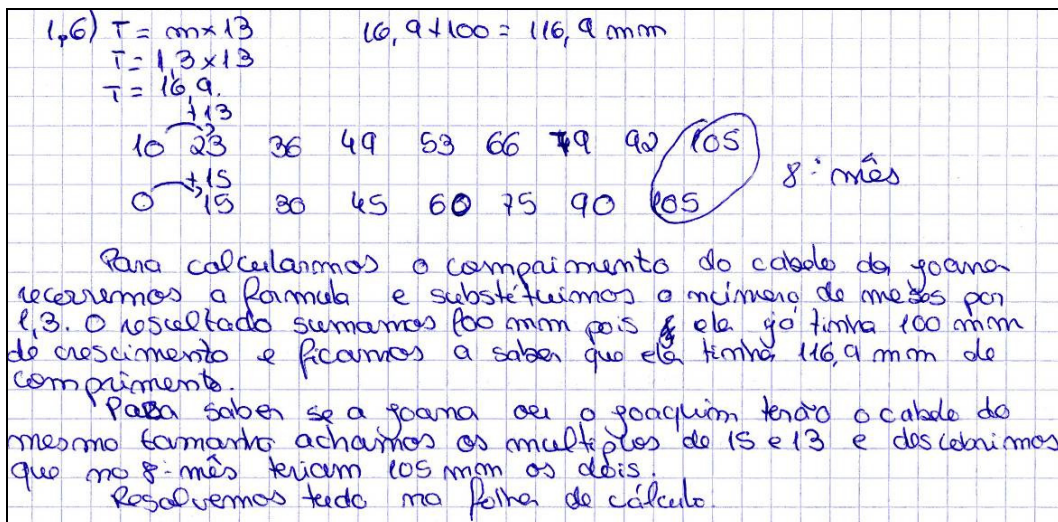 1,6) T = m×13 16,9+100 = 116,9 mm
T = 1,3×13
T = 16,9.
+13
10 23 36 49 53 66 79 92 105
+15
0 15 30 45 60 75 90 105
8º mês
Para calcularmos o comprimento do cabelo da Joana
recorremos a formula e substituimos o número de meses por
1,3. O resultado sumamos 100 mm pois ela já tinha 100 mm
de crescimento e ficamos a saber que ela tinha 116,9 mm de
comprimento.
Para saber se a Joana ou o Joaquim terão o cabelo do
mesmo tamanho achamos os multiplos de 15 e 13 e descobrimos
que no 8º mês teriam 105 mm os dois.
Resolvemos tudo na folha de cálculo.